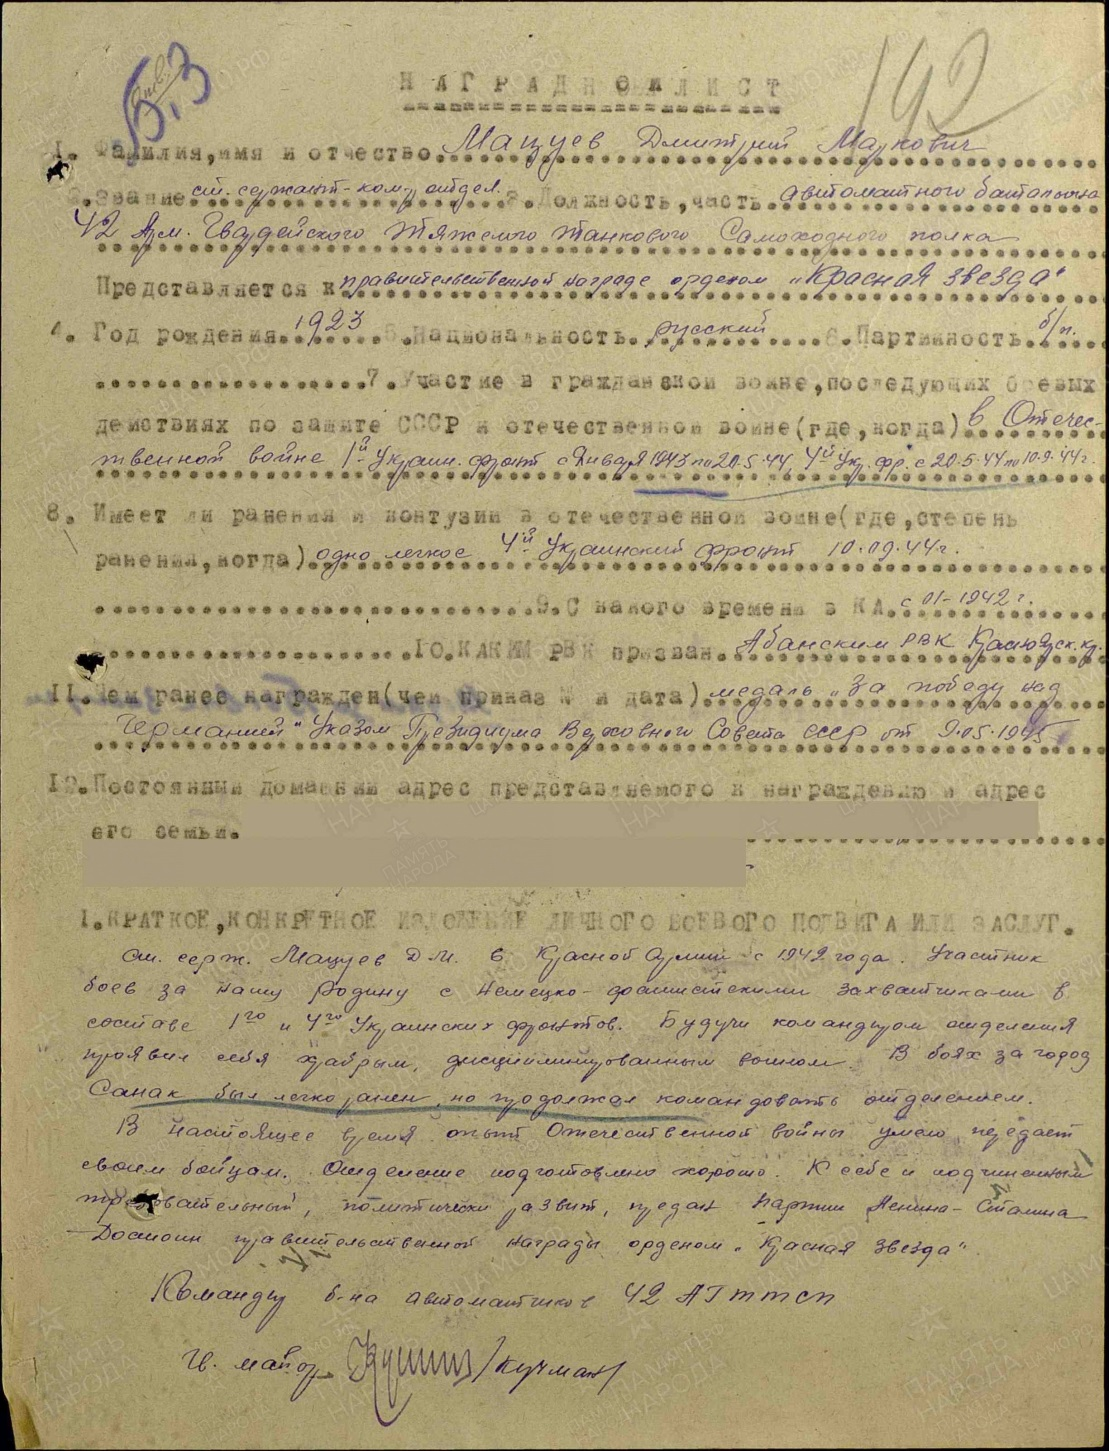 192
НАГРАДНОЙ ЛИСТ
1. Фамилия,имя и отчество. Мацуев Дмитрий Маркович
2.Звание ст. сержант-ком. отдел. 3.Должность,часть. автоматного батальона
42 Арм. Гвардейского Тяжелого Танкового Самоходного полка
Представляется к правительственной награде орденом „Красная звезда"
4. Год рождения. 1923 5.Национальность. русский 6.Партийность. б/п.
7.Участие в гражданской войне,последующих боевых
действиях по защите СССР и отечественной войне(где,когда) в Отечес-
твенной войне 1й Украин. фронт с Января 1943 по 20.5.44, 4й Укр. фр. с 20.5.44 по 10.9.44г.
8. Имеет ли ранения и контузии в отечественной войне(где,степень
ранения,когда) одно легкое 4й Украинский фронт 10.09.44г.
9.С какого времени в КА. с 01-1942 г.
10.КАКИМ РВК призван. Абанским РВК Краснояск.кр.
11.Чем ранее награжден(чей приказ № и дата) медаль „За победу над
Германией" Указом Президиума Верховного Совета СССР от 9.05.1945
12.Постоянный домашний адрес представляемого к награждению и адрес
его семьи.
1.КРАТКОЕ,КОНКРЕТНОЕ ИЗЛОЖЕНИЕ ЛИЧНОГО БОЕВОГО ПОДВИГА ИЛИ ЗАСЛУГ.
Ст. серж. Мацуев Д.М. в Красной Армии с 1942 года. Участник
боев за нашу Родину с Немецко-фашистскими захватчиками в
составе 1го и 4го Украинских фронтов. Будучи командиром отделения
проявил себя храбрым, дисциплинированным воином. В боях за город
Санак был легко ранен, но продолжал командовать отделением.
В настоящее время опыт Отечественной войны умело передает
своим бойцам. Отделение подготовлено хорошо. К себе и подчиненным
требовательный, политически развит, предан Партии Ленина-Сталина
Достоин правительственной награды орденом „Красная звезда".
Командир б-на автоматчиков 42 АГттсп
Гв. майор /Кучман/